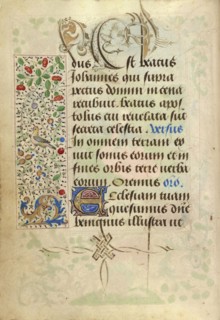 dus Est beatus
Johannes qui supra
pectus domini in cena
recubuit beatus apos
tolus cui revelata sūt
secreta celestia Versus
In omnem terram ex
ivit sonus eorum et in
fines orbis terre verba
eorum Oremus oro.
Ecclesiam tuam
quesumus dn̄e
benignus illustra ut